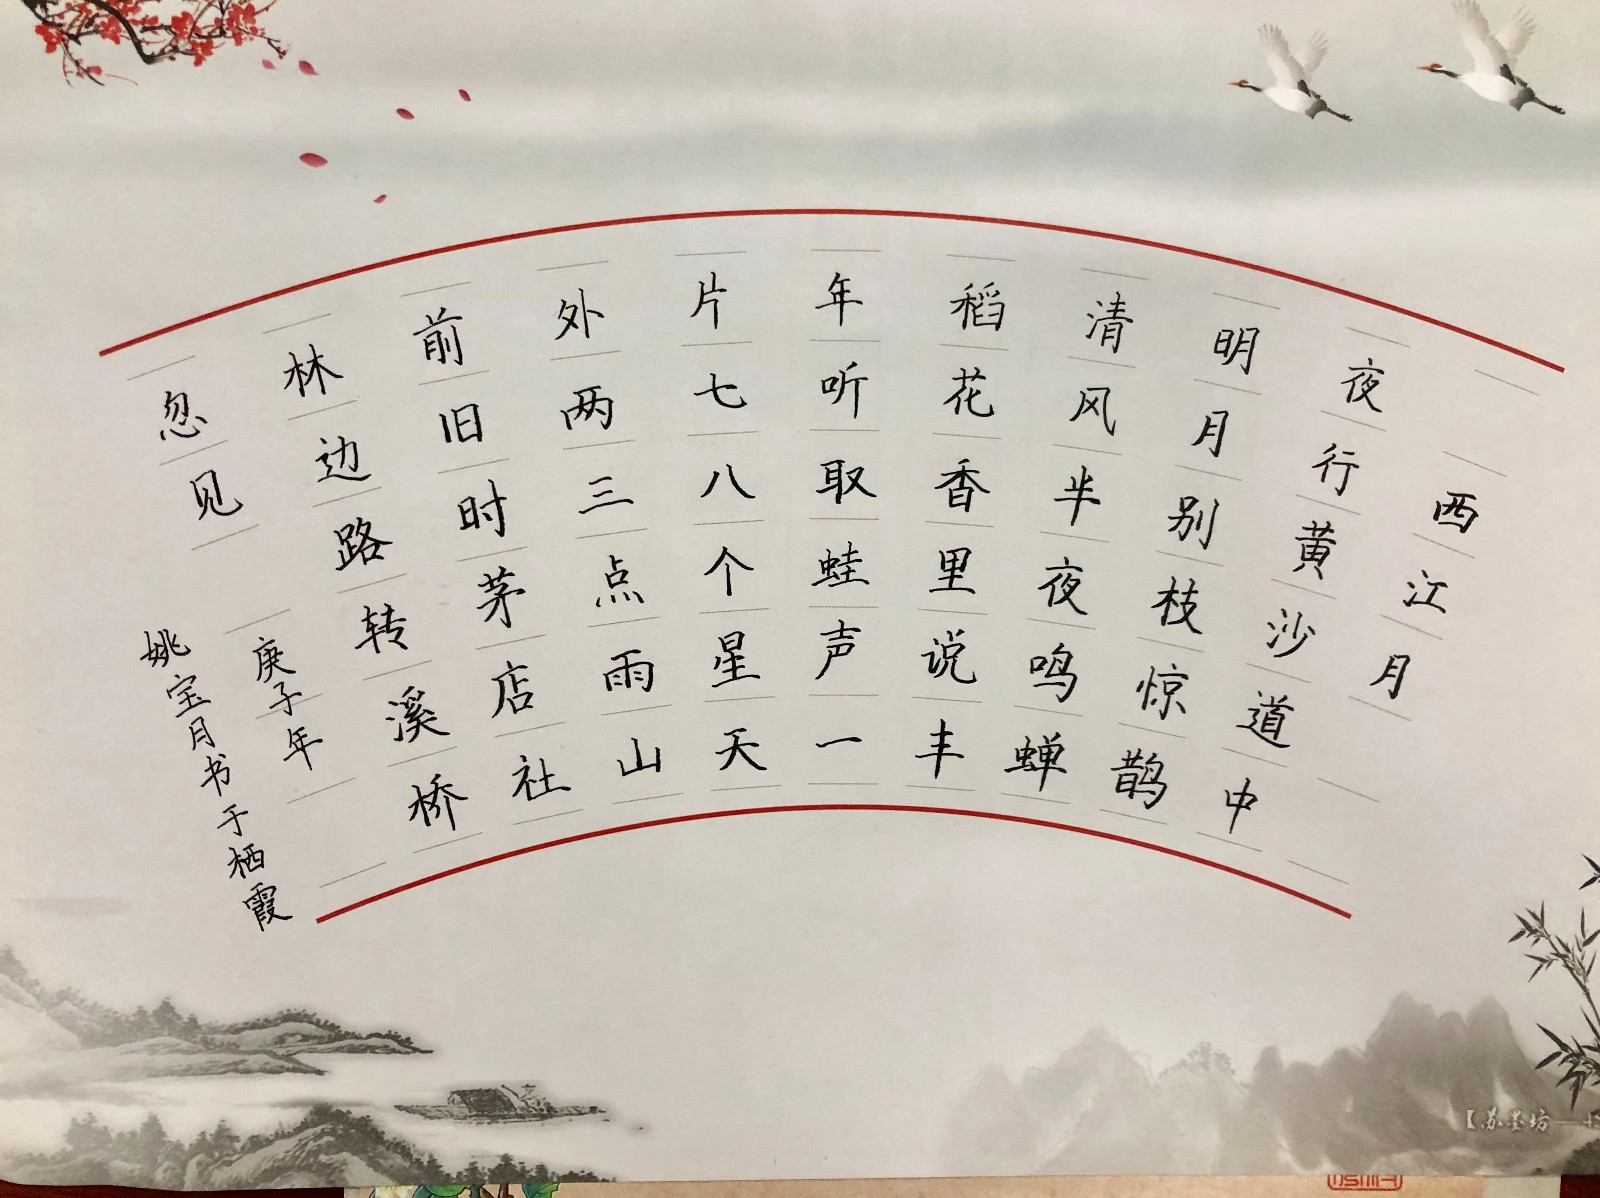 西江月
夜行黄沙道中
明月别枝惊鹊
清风半夜鸣蝉
稻花香里说丰
年听取蛙声一
片七八个星天
外两三点雨山
前旧时茅店社
林边路转溪桥
忽见
庚子年
姚宝月书于栖霞
【苏墨坊